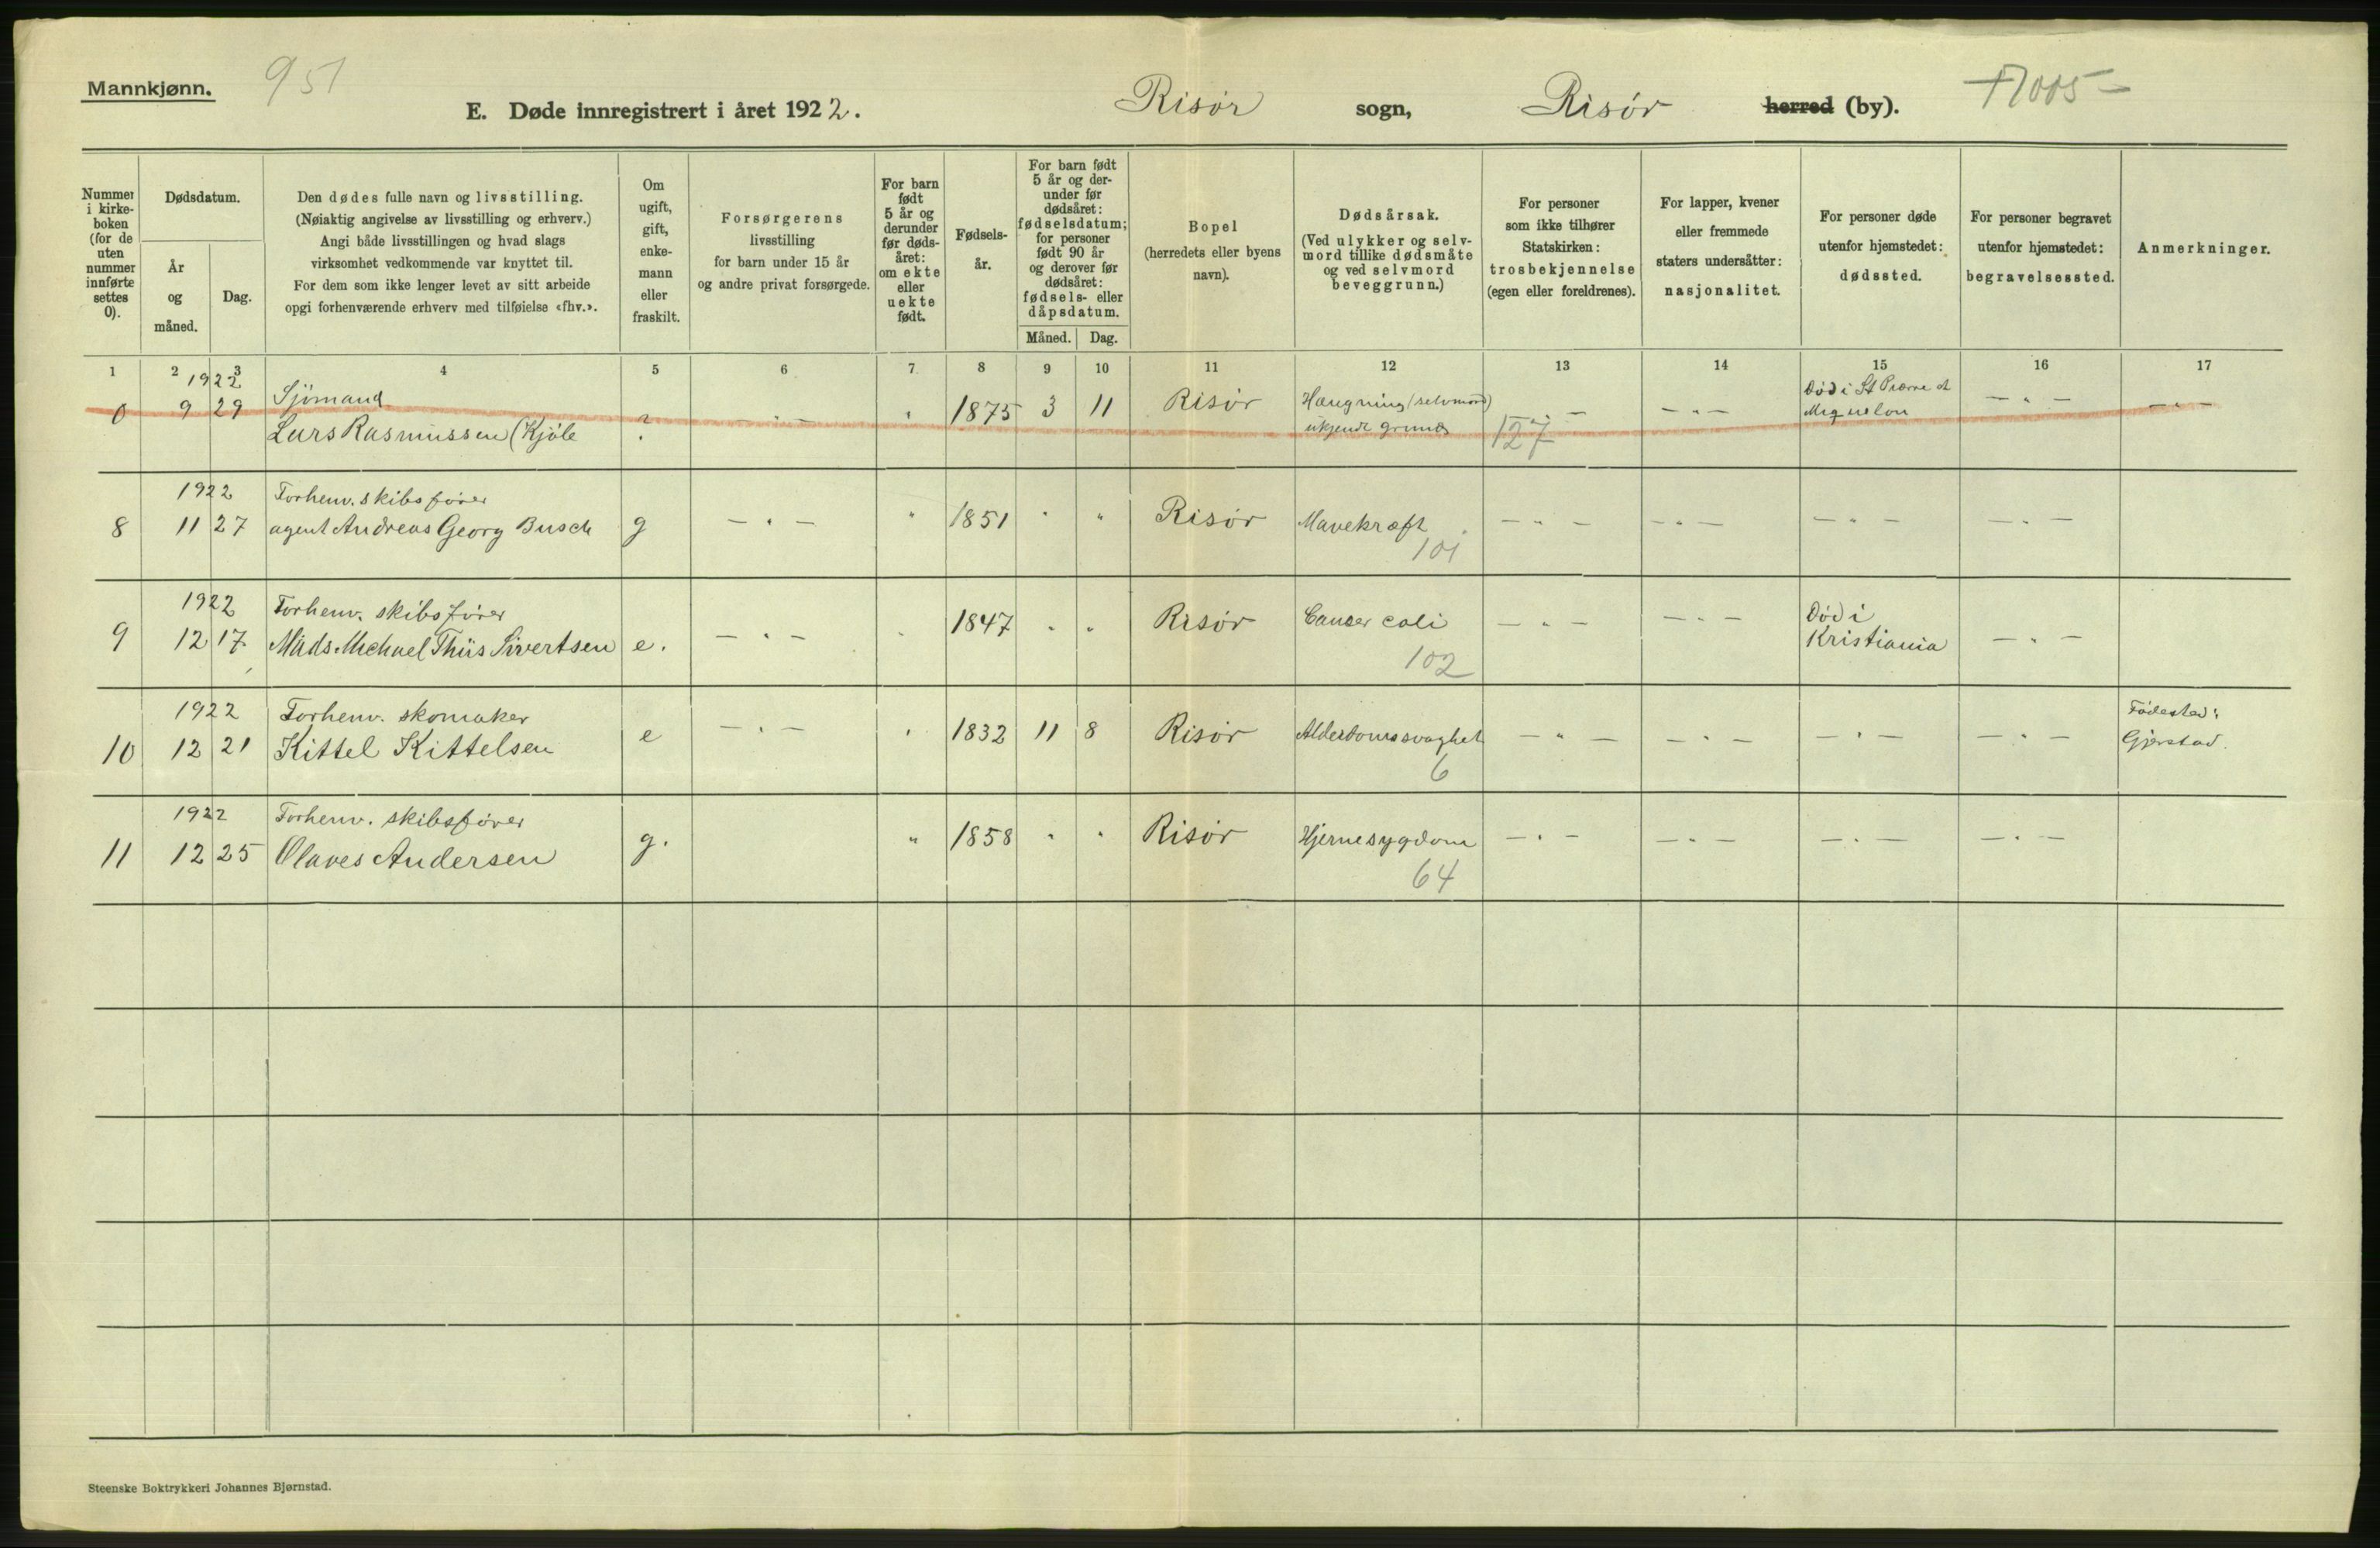 Mannkjønn.
951
E. Døde innregistrert i året 1922.
Risör sogn, Risör herred (by).
Nummer i kirkeboken (for de uten nummer innførte settes 0).
Dødsdatum.
År og måned.
Dag.
Den dødes fulle navn og livsstilling.
(Nøiaktig angivelse av livsstilling og erhverv.)
Angi både livsstillingen og hvad slags
virksomhet vedkommende var knyttet til.
For dem som ikke lenger levet av sitt arbeide
opgi forhenværende erhverv med tilføielse «fhv.».
Om
ugift,
gift,
enke-
mann
eller
fraskilt.
Forsørgerens
livsstilling
for barn under 15 år
og andre privat forsørgede.
For barn
født
5 år og
derunder
før døds-
året:
om ekte
eller
uekte
født.
Fødsels-
år.
For barn født
5 år og der-
under før
dødsåret:
fødselsdatum;
for personer
født 90 år
og derover før
dødsåret:
fødsels- eller
dåpsdatum.
Måned. Dag.
Bopel
(herredets eller byens
navn).
Dødsårsak.
(Ved ulykker og selv-
mord tillike dødsmåte
og ved selvmord
beveggrunn.)
For personer
som ikke tilhører
Statskirken:
trosbekjennelse
(egen eller foreldrenes).
For lapper, kvener
eller fremmede
staters undersåtter:
nasjonalitet.
For personer døde
utenfor hjemstedet:
dødssted.
For personer begravet
utenfor hjemstedet:
begravelsessted.
Anmerkninger.
1 2 3 4 5 6 7 8 9 10 11 12 13 14 15 16 17
1922 Sjömand Död i St Pierre et
0 9 29 Lars Rasmussen (Kjöle ? — " — " 1875 3 11 Risör Hængning (selvmord) — " — — " — Miquelon — " — — " —
ukjendt grund 127
1922 Forhenv. skibsförer
8 11 27 agent Andreas Georg Busch g — " — " 1851 " " Risör Mavekræft — " — — " — — " — — " —
101
1922 Forhenv. skibsförer Död i
9 12 17 Mads Michael Thiis Sivertsen e. — " — " 1847 " " Risör Cancer coli — " — — " — Kristiania — " —
102
1922 Forhenv. skomaker Födested:
10 12 21 Kittel Kittelsen e — " — " 1832 11 8 Risör Alderdomssvaghet — " — — " — — " — — " — Gjerstad.
6
1922 Forhenv. skibsförer
11 12 25 Olaves Andersen g. " 1858 " " Risör Hjernesygdom — " — — " — — " — — " —
64
Steenske Boktrykkeri Johannes Bjørnstad.